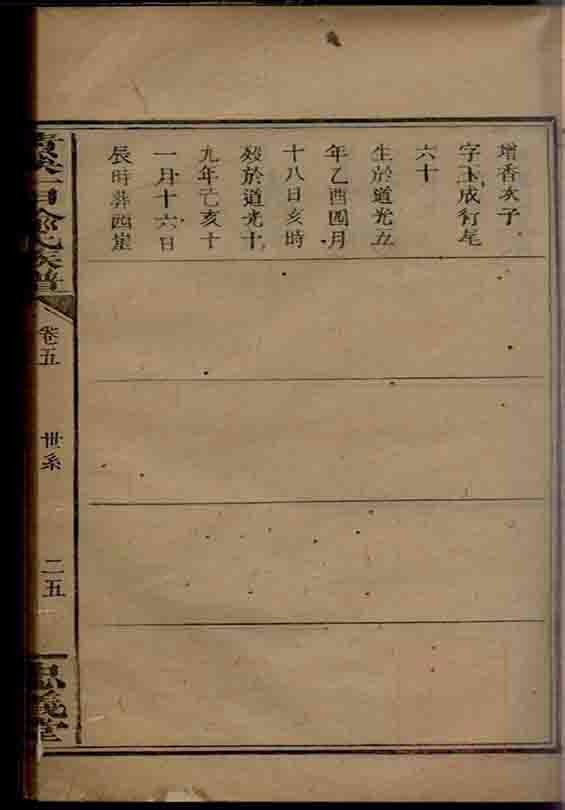 增香次子
字玉成行尾
六十
生於道光五
年乙酉四月
十八日亥時
殁於道光十
九年己亥十
一月十六日
辰時葬西崖
俞氏族譜
卷五
世系
二五
忠義堂